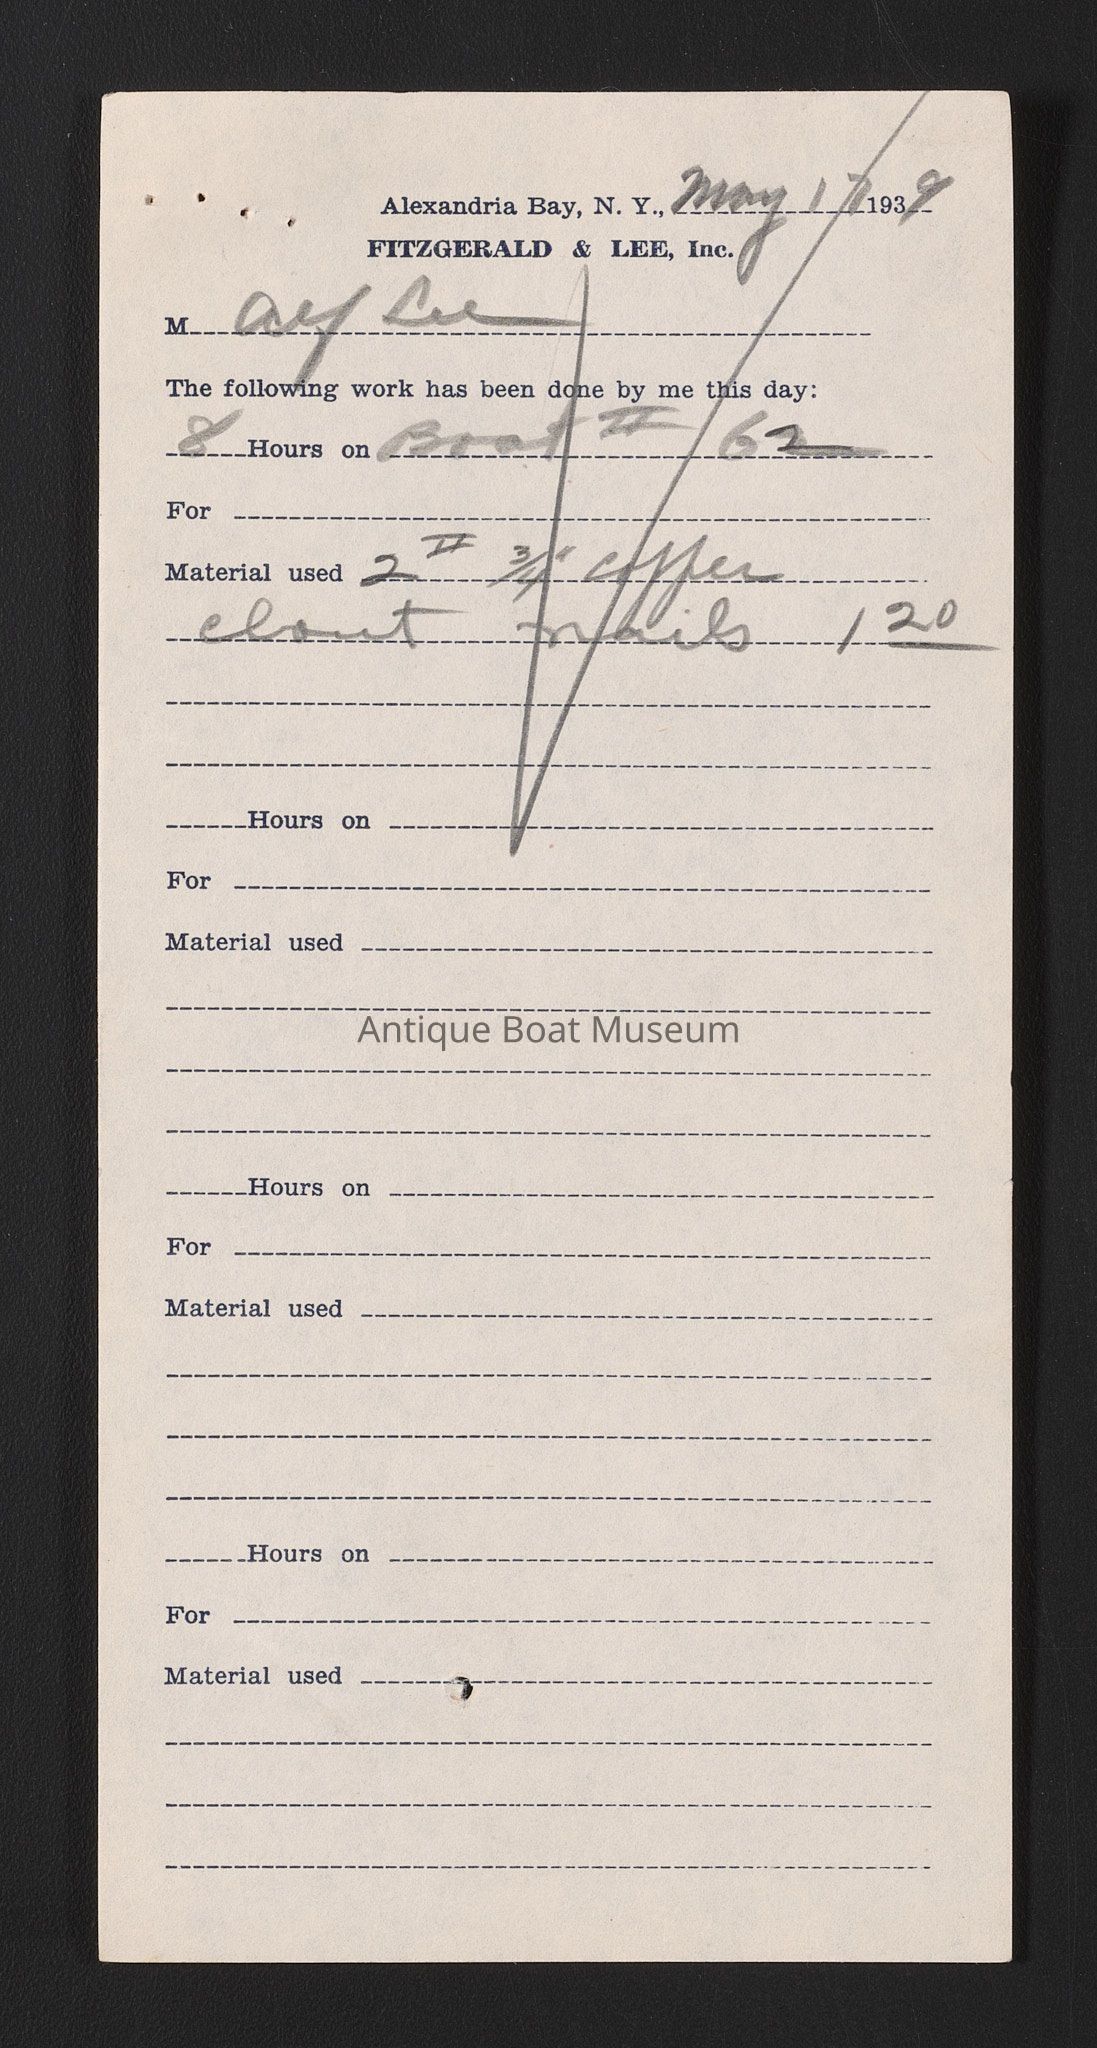 Alexandria Bay, N. Y., May 17 1939
FITZGERALD & LEE, Inc.
M Alf Lee
The following work has been done by me this day:
8 Hours on Boat # 62
For
Material used 2 # 3/4" copper
clout nails 1 20
Hours on
For
Material used
Antique Boat Museum
Hours on
For
Material used
Hours on
For
Material used